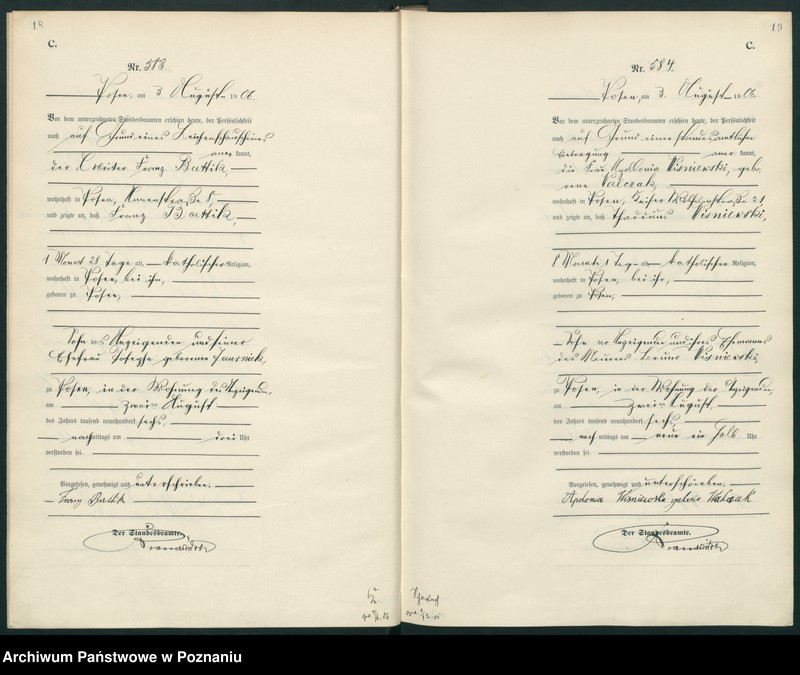 18
C.
Nr. 583.
Posen, am 3 August 1906.
Vor dem unterzeichneten Standesbeamten erschien heute, der Persönlichkeit
nach auf Grund eines Leichenschauscheines
aner kannt,
der Arbeiter Franz Battik,
wohnhaft in Posen,
und zeigte an, daß Franz Battik,
1 Monat 28 Tage alt, katholischer Religion,
wohnhaft in Posen, bei ihm,
geboren zu Posen,
Sohn des Anzeigenden und seiner
Ehefrau geborenen
zu Posen, in der Wohnung des Anzeigenden,
am zweiten August
des Jahres tausend neunhundert sechs,
nachmittags um drei Uhr
verstorben sei.
Vorgelesen, genehmigt und unterschrieben.
Franz Battik
Der Standesbeamte.
19
C.
Nr. 584.
Posen, am 3. August 1906.
Vor dem unterzeichneten Standesbeamten erschien heute, der Persönlichkeit
nach auf Grund einer standesamtlichen
aner kannt,
die Frau Apollonia Wisniewski, gebo-
rene Walczak,
wohnhaft in Posen, Kaiser Wilhelmstraße 21,
und zeigte an, daß Thaddäus Wisniewski,
8 Monate 1 Tag alt, katholischer Religion,
wohnhaft in Posen, bei ihr,
geboren zu Posen,
Sohn der Anzeigenden und ihres Ehemannes
des Maurers Bruno Wisniewski,
zu Posen, in der Wohnung der Anzeigenden,
am zweiten August,
des Jahres tausend neunhundert sechs,
nach mittags um neun ein halb Uhr
verstorben sei.
Vorgelesen, genehmigt und unterschrieben.
Apolonia Wisniewska geboren Walczak
Der Standesbeamte.
Archiwum Państwowe w Poznaniu